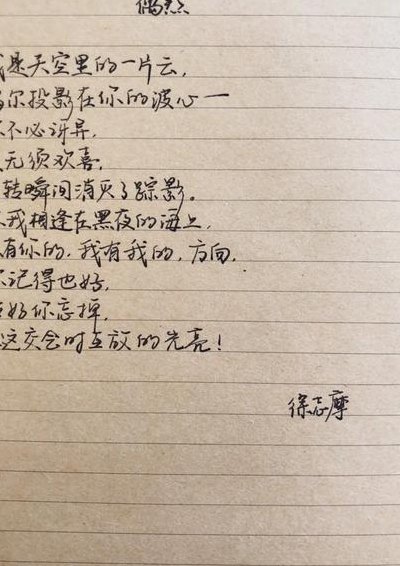 偶然
我是天空里的一片云,
尔投影在你的波心一
不必讶异,
无须欢喜,
转瞬间消灭了踪影。
我相逢在黑夜的海上,
有你的,我有我的,方向.
记得也好,
好你忘掉,
这交会时互放的光亮!
徐志摩